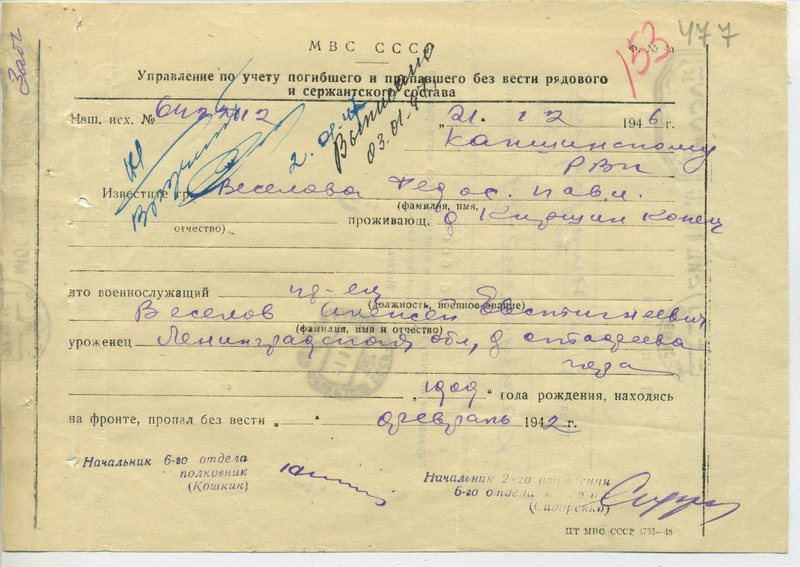 153 477
Загс
МВС СССР
Ф. № 4а
Управление по учету погибшего и пропавшего без вести рядового
и сержантского состава
Наш. исх. №
„21. 12 1946 г.
Выписано
03.01.
2. 01. 47
Капшинскому
РВК
Известите гр. Веселова Федос. Павл.
(фамилия, имя,
отчество)
проживающ. д Кидщин Конец
что военнослужащий
(должность, военное звание)
Веселов Алексей Евстигнеевич
(фамилия, имя и отчество)
уроженец Ленинградская обл, д
„ 1909 “ года рождения, находясь
на фронте, пропал без вести „ “ февраль 1942 г.
Начальник 6-го отдела
полковник
(Кошкин)
Начальник 2-го отделения
6-го отдела
(Сидоренко)
ЦТ МВС СССР 1735—46